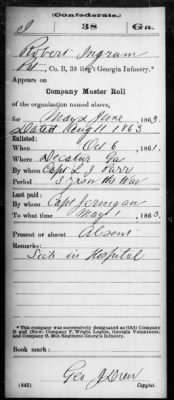 (Confederate.)
I 38 Ga.
Robert Ingram
Pvt, Co. B, 38 Reg't Georgia Infantry.*
Appears on
Company Muster Roll
of the organization named above,
for May & June, 1863.
Dated Aug 11 1863
Enlisted:
When Oct 6, 1861.
Where Decatur Ga
By whom Capt L. J. Farr
Period 3 yrs or the War
Last paid:
By whom Capt Jernegan
To what time May 1, 1863.
Present or absent Absent
Remarks:
Sick in Hospital
*This company was successively designated as (Old) Company
B and (New) Company F, Wright Legion, Georgia Volunteers;
and Company B, 38th Regiment Georgia Infantry.
Book mark:
(642) Geo J Drew
Copyist.